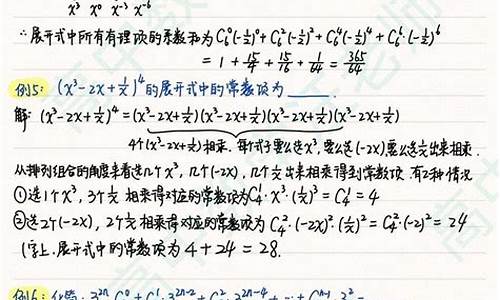 x³ x⁰ x⁻³ x⁻⁶
∴展开式中所有有理项的系数和为 C₆⁰(-½)⁰+C₆²(-½)²+C₆⁴(-½)⁴+C₆⁶(-½)⁶
= 1 + 15/4 + 15/16 + 1/64 = 365/64
例5: (x³-2x+1/x)⁴的展开式中的常数项为______.
解: (x³-2x+1/x)⁴=(x³-2x+1/x)(x³-2x+1/x)(x³-2x+1/x)(x³-2x+1/x)
4个(x³-2x+1/x)相乘. 每个式子要么选x³,要么选(-2x),要么选1/x出来相乘.
从排列组合的角度来看选几个x³, 几个(-2x), 几个1/x出来相乘得到常数项. 有2种情况
①选1个x³, 3个1/x 相乘得对应的常数项为C₄¹·x³·(1/x)³=C₄¹=4
②选2个(-2x), 2个1/x 相乘得对应的常数项为C₄²·(-2x)²·(1/x)²=C₄²·(-2)²=24
综上,展开式中的常数项为 4+24=28.